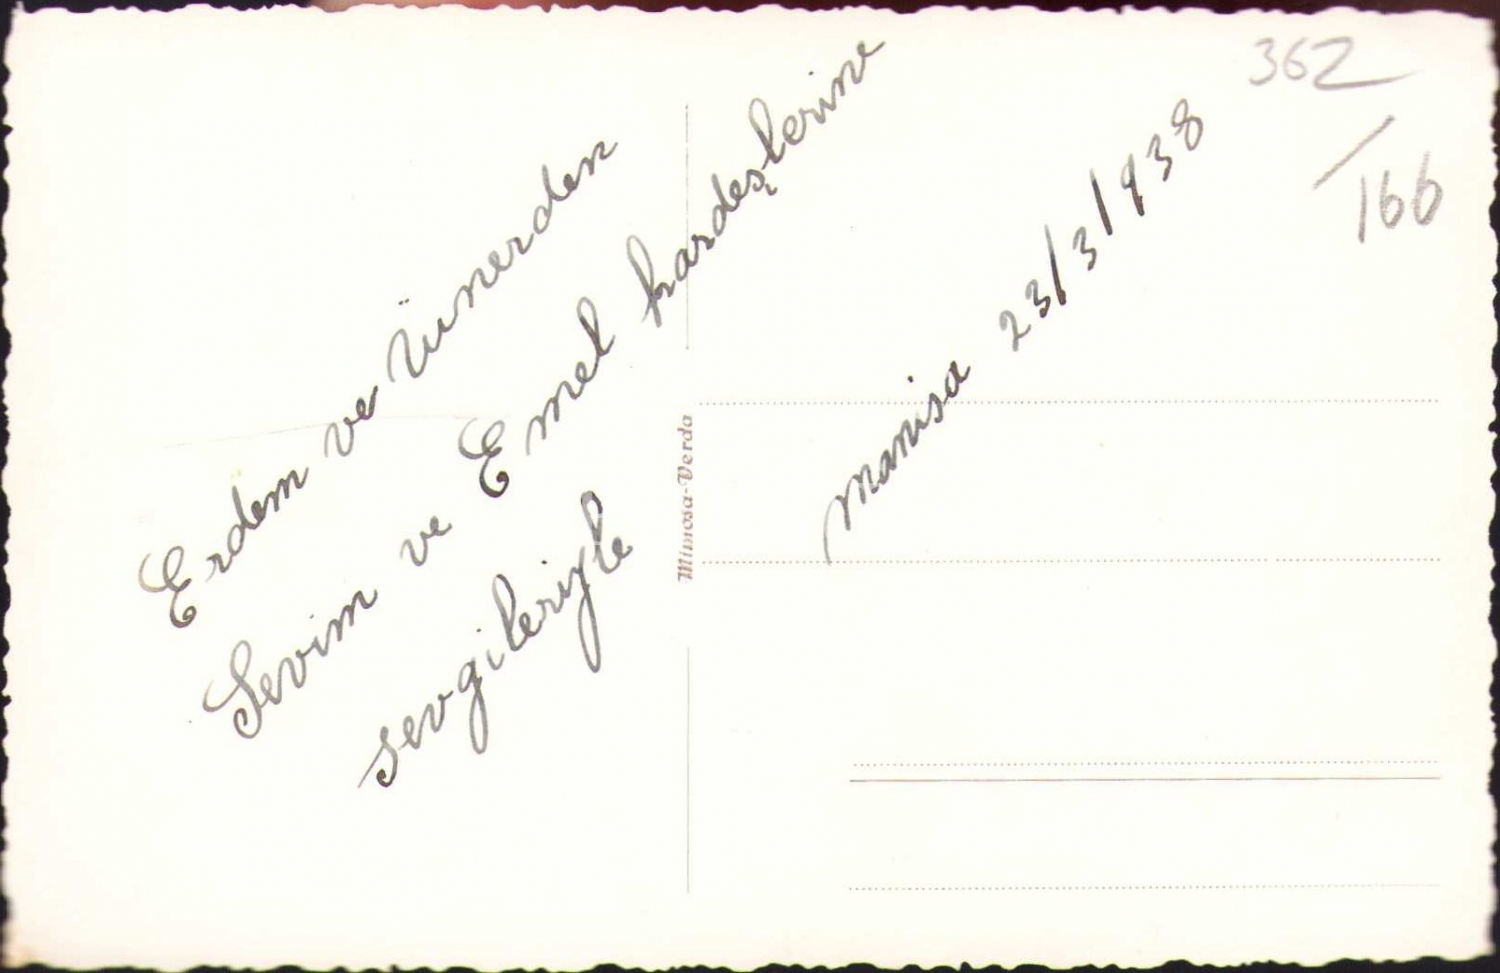 Erdem ve Ünerden
Sevim ve Emel kardeşlerine
sevgileriyle
Manisa 23/3/938
Mimosa-Verda
362
/166